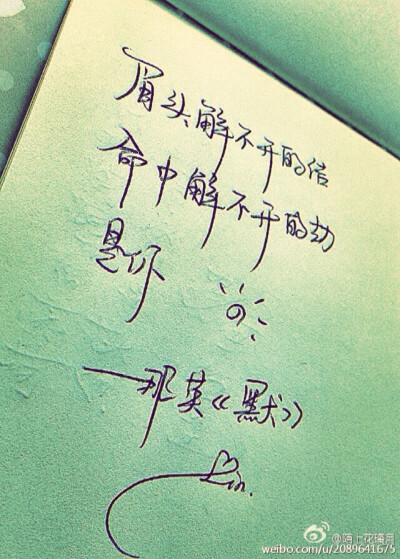 眉头解不开的结
命中解不开的劫
是你
——那英《默》
Lin.
@陌上花璃月
weibo.com/u/2089641675